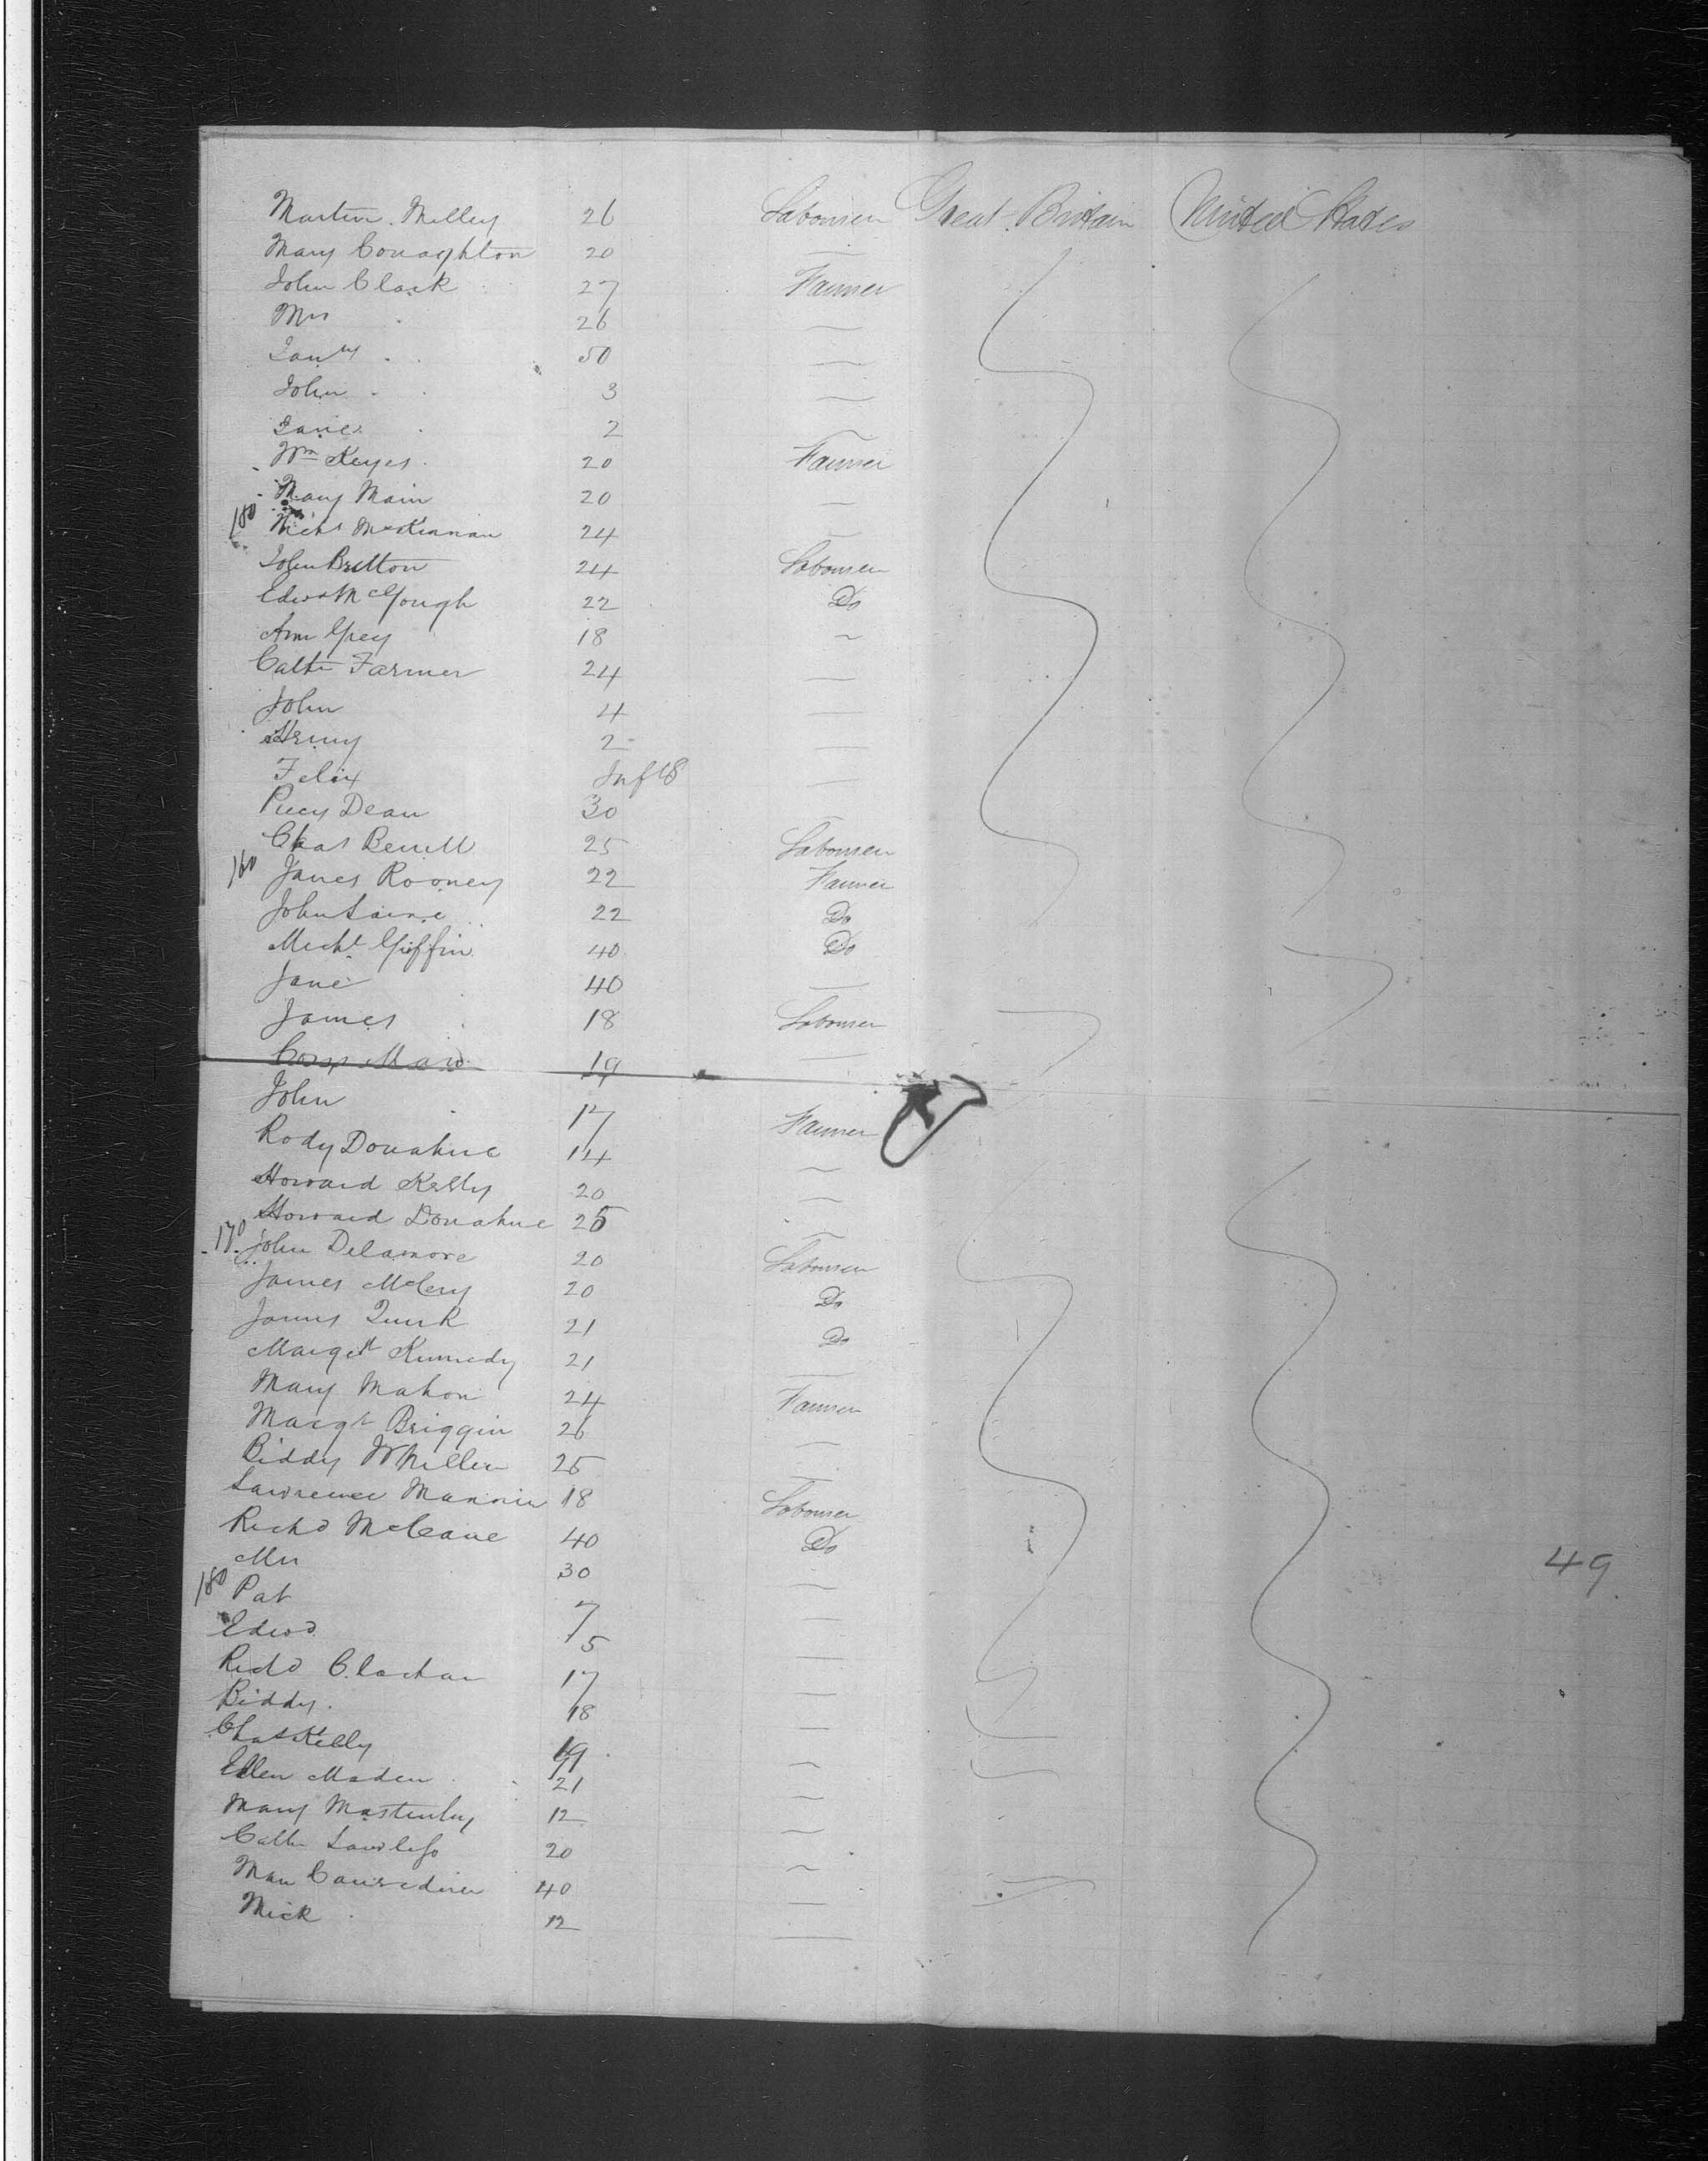 Martin Melley 26 Labourer Great Britain United States
Mary Conaghton 20 —
John Clark 27 Farmer
Mrs 26 —
50 —
John 3 —
Jane 2 —
Wm Keyes 20 Farmer
Mary Main 20 —
Michl McKiernan 24 —
John Britton 24 Labourer
Edwd McGough 22 Do
Ann Grey 18 —
Cathe Farmer 24 —
John 4 —
Henry 2 —
Felix Inft —
Dean 30 —
Chas 25 Labourer
160 James Rooney 22 Farmer
John 22 Do
Michl Giffin 40 Do
Jane 40 —
James 18 Labourer
19 —
John 17 Farmer
Rody Donahue 14 —
Howard Kelly 20 —
Howard Donahue 25 —
170 John Delamore 20 Labourer
James 20 Do
James Quirk 21 Do
Marget Kennedy 21 —
Mary Mahon 24 Farmer
Margt Briggin 26 —
Biddy 25 —
Lawrence Mannin 18 Labourer
Richd McCane 40 Do
Mrs 30 —
180 Pat 7 —
Edwd 5 —
Richd Clachan 17 —
Biddy 18 —
Chas Kelly 19 —
Ellen Maden 21 —
Mary 12 —
Cathe Lawless 20 —
40 —
Mick 12 —
49